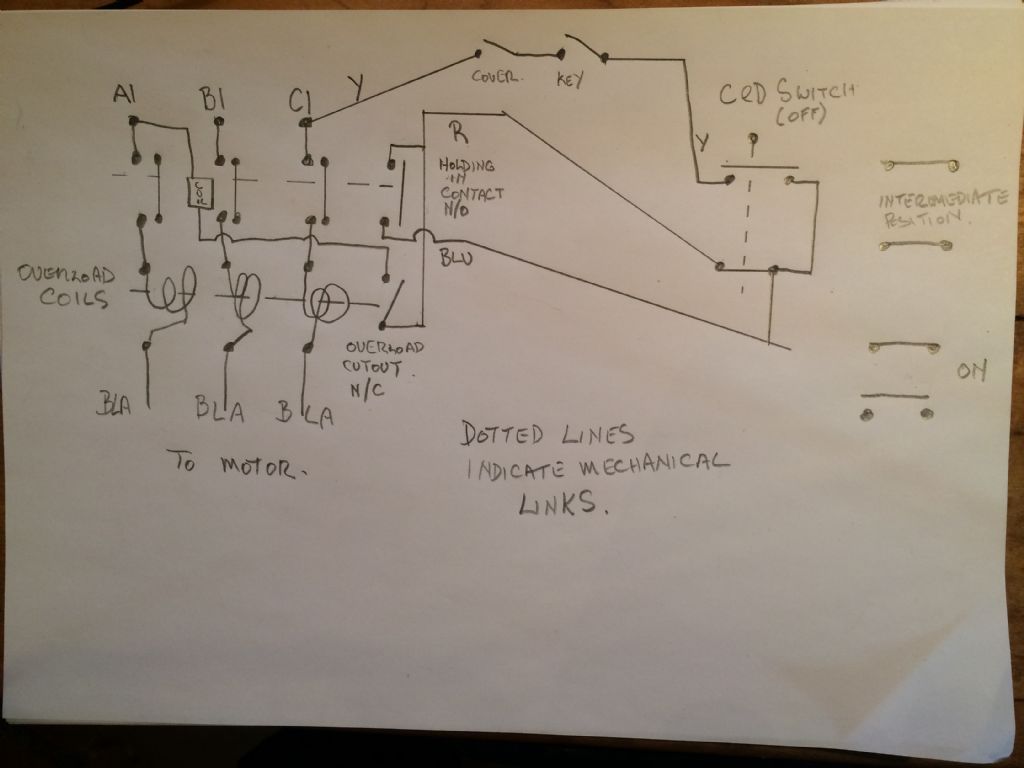 A1
B1
C1
Y
COVER.
KEY
CRD SWITCH
(OFF)
R
Y
HOLDING
IN
CONTACT
N/O
COIL
INTERMEDIATE
POSITION.
BLU
OVERLOAD
COILS
OVERLOAD
CUTOUT.
N/C
ON
BLA
BLA
BLA
TO MOTOR.
DOTTED LINES
INDICATE MECHANICAL
LINKS.